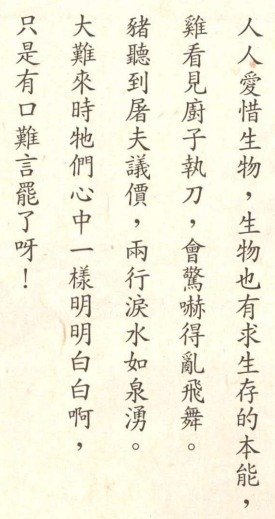 人人愛惜生物,生物也有求生存的本能,
雞看見廚子執刀,會驚嚇得亂飛舞。
豬聽到屠夫議價,兩行淚水如泉湧。
大難來時牠們心中一樣明明白白啊,
只是有口難言罷了呀!